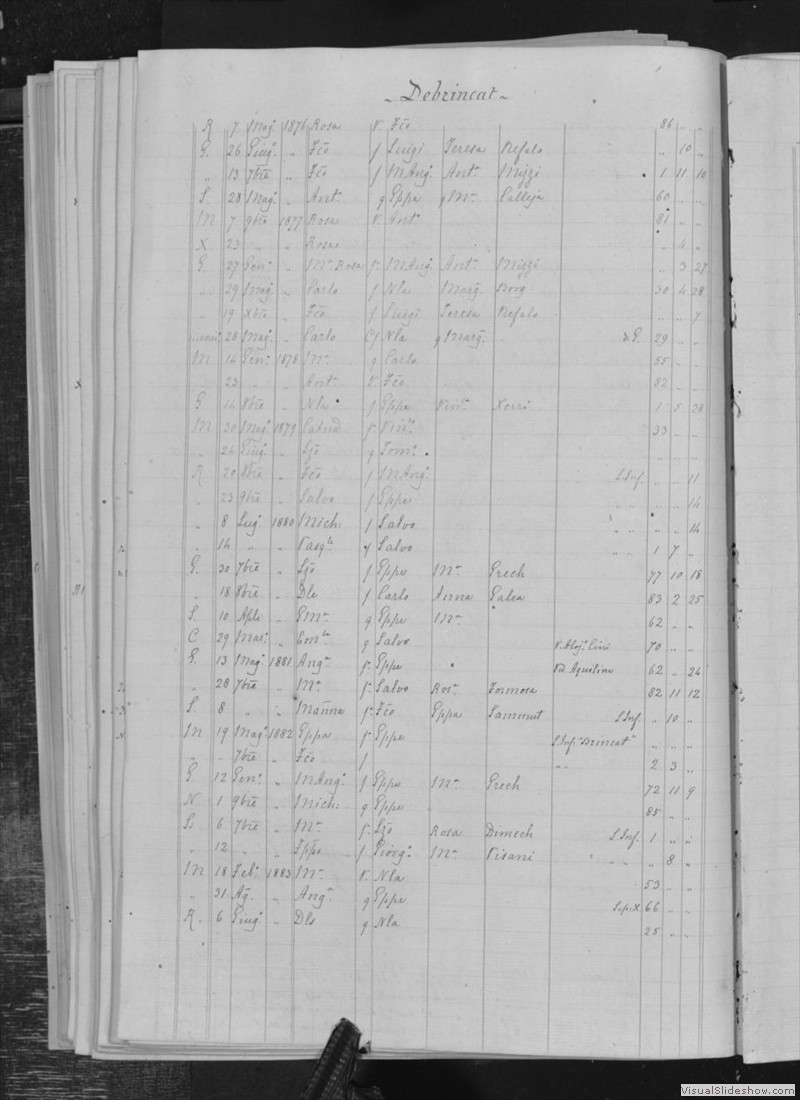 - Debrincat -
R 7 Magº 1876 Rosa V. Fčo 86 " "
G. 26 Giugº " Fčo f Luigi Teresa Refalo " 10 "
" 13 7bre " Fčo f MAngº Antª Mizzi 1 11 10
S. 28 Magº " Antª q Eppe q Mª Calleja 60 " "
M 7 9bre 1877 Rosa V. Antº 81 " "
X 23 " " Rosa " 4 "
G. 27 Genº " Mª Rosa fª MAngº Antª Mizzi " 3 27
" 29 Magº " Carlo f Nla Margª Borg 30 4 28
" 19 Xbre " Fčo f Luigi Teresa Refalo " " 7
28 Magº " Carlo Cf Nla q Margª " G. 29 " "
M 14 Genº 1878 Mª q Carlo 55 " "
" 23 " " Antª V. Fčo 82 " "
G 14 8bre " Nla f Eppe Vinª Xerri 1 5 28
M 30 Magº 1879 fª Vinº 33 " "
" 24 Giugº " Ljo q Tomº " " "
R 20 8bre " Fčo f MAngº S.Inf. " " 11
" 23 9bre " Salvo f Eppe " " " " 14
" 8 Lugº 1880 Mich: f Salvo " " " " 14
" 14 " " Pasqle f Salvo " " 1 7 "
G. 30 7bre " Ljo f Eppe Mª Grech 77 10 18
" 18 8bre " Dle f Carlo Anna Galea 83 2 25
S. 10 Aple " Gmª q Eppe Mª 62 " "
C 29 Marº " Emla q Salvo V. Aloj. Cini 70 " "
G. 13 Magº 1881 Angª fª Eppe Vd. Aquilina 62 " 24
" 28 7bre " Mª fª Salvo Rosª Formosa 82 11 12
S. 8 " " Marina fª Fčo Eppa Sammut S.Inf. " 10 "
M 19 Magº 1882 Eppa fª Eppe S.Inf. "Brincat" " " "
" " 7bre " Fčo f " " 2 3 "
G 12 Genº " MAngº f Eppe Mª Grech 72 11 9
N 1 9bre " Mich: q Eppe 85 " "
S. 6 7bre " Mª fª Ljo Rosa Dimech S.Inf. 1 " "
" 12 " " f Giorgº Mª Pisani " " " 8 "
M 18 Febº 1883 Mª V. Nla 53 " "
" 31 Agº " Angº q Eppe 66 " "
R. 6 Giugº " Dls q Nla 25 " "
VisualSlideshow.com